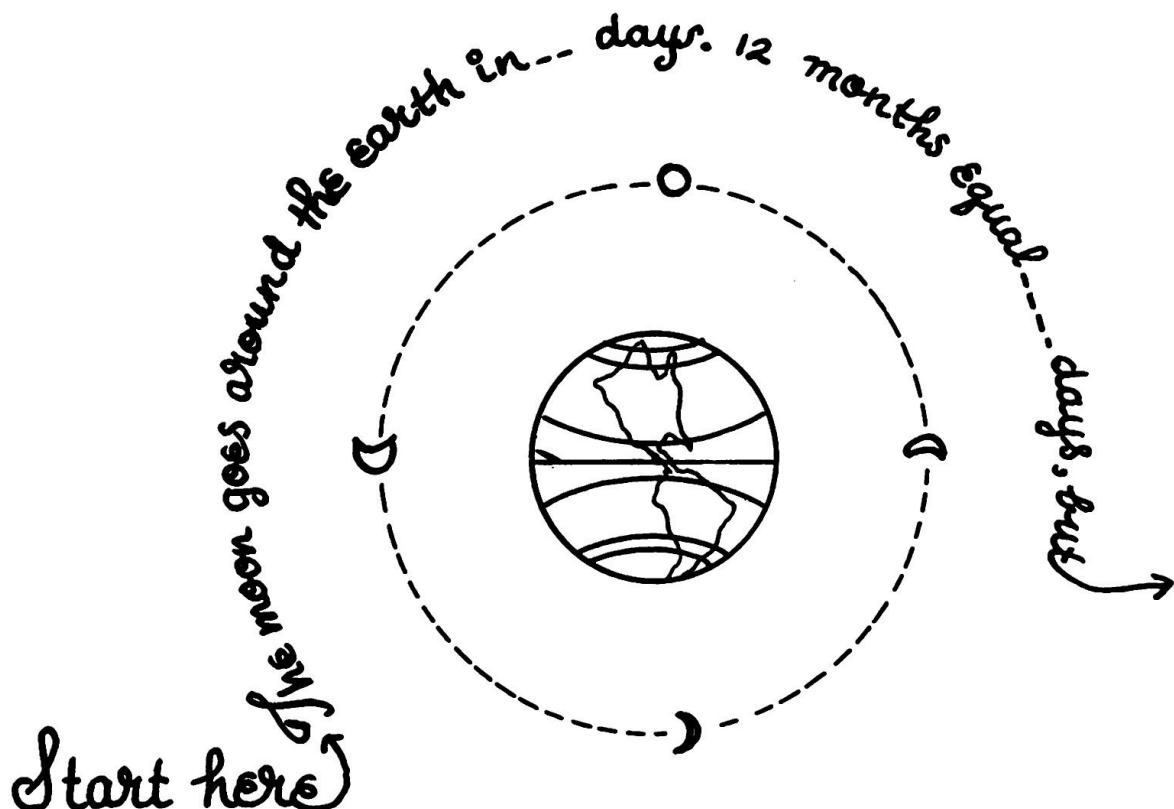 Start here
The moon goes around the earth in--- days. 12 months equal----- days, but